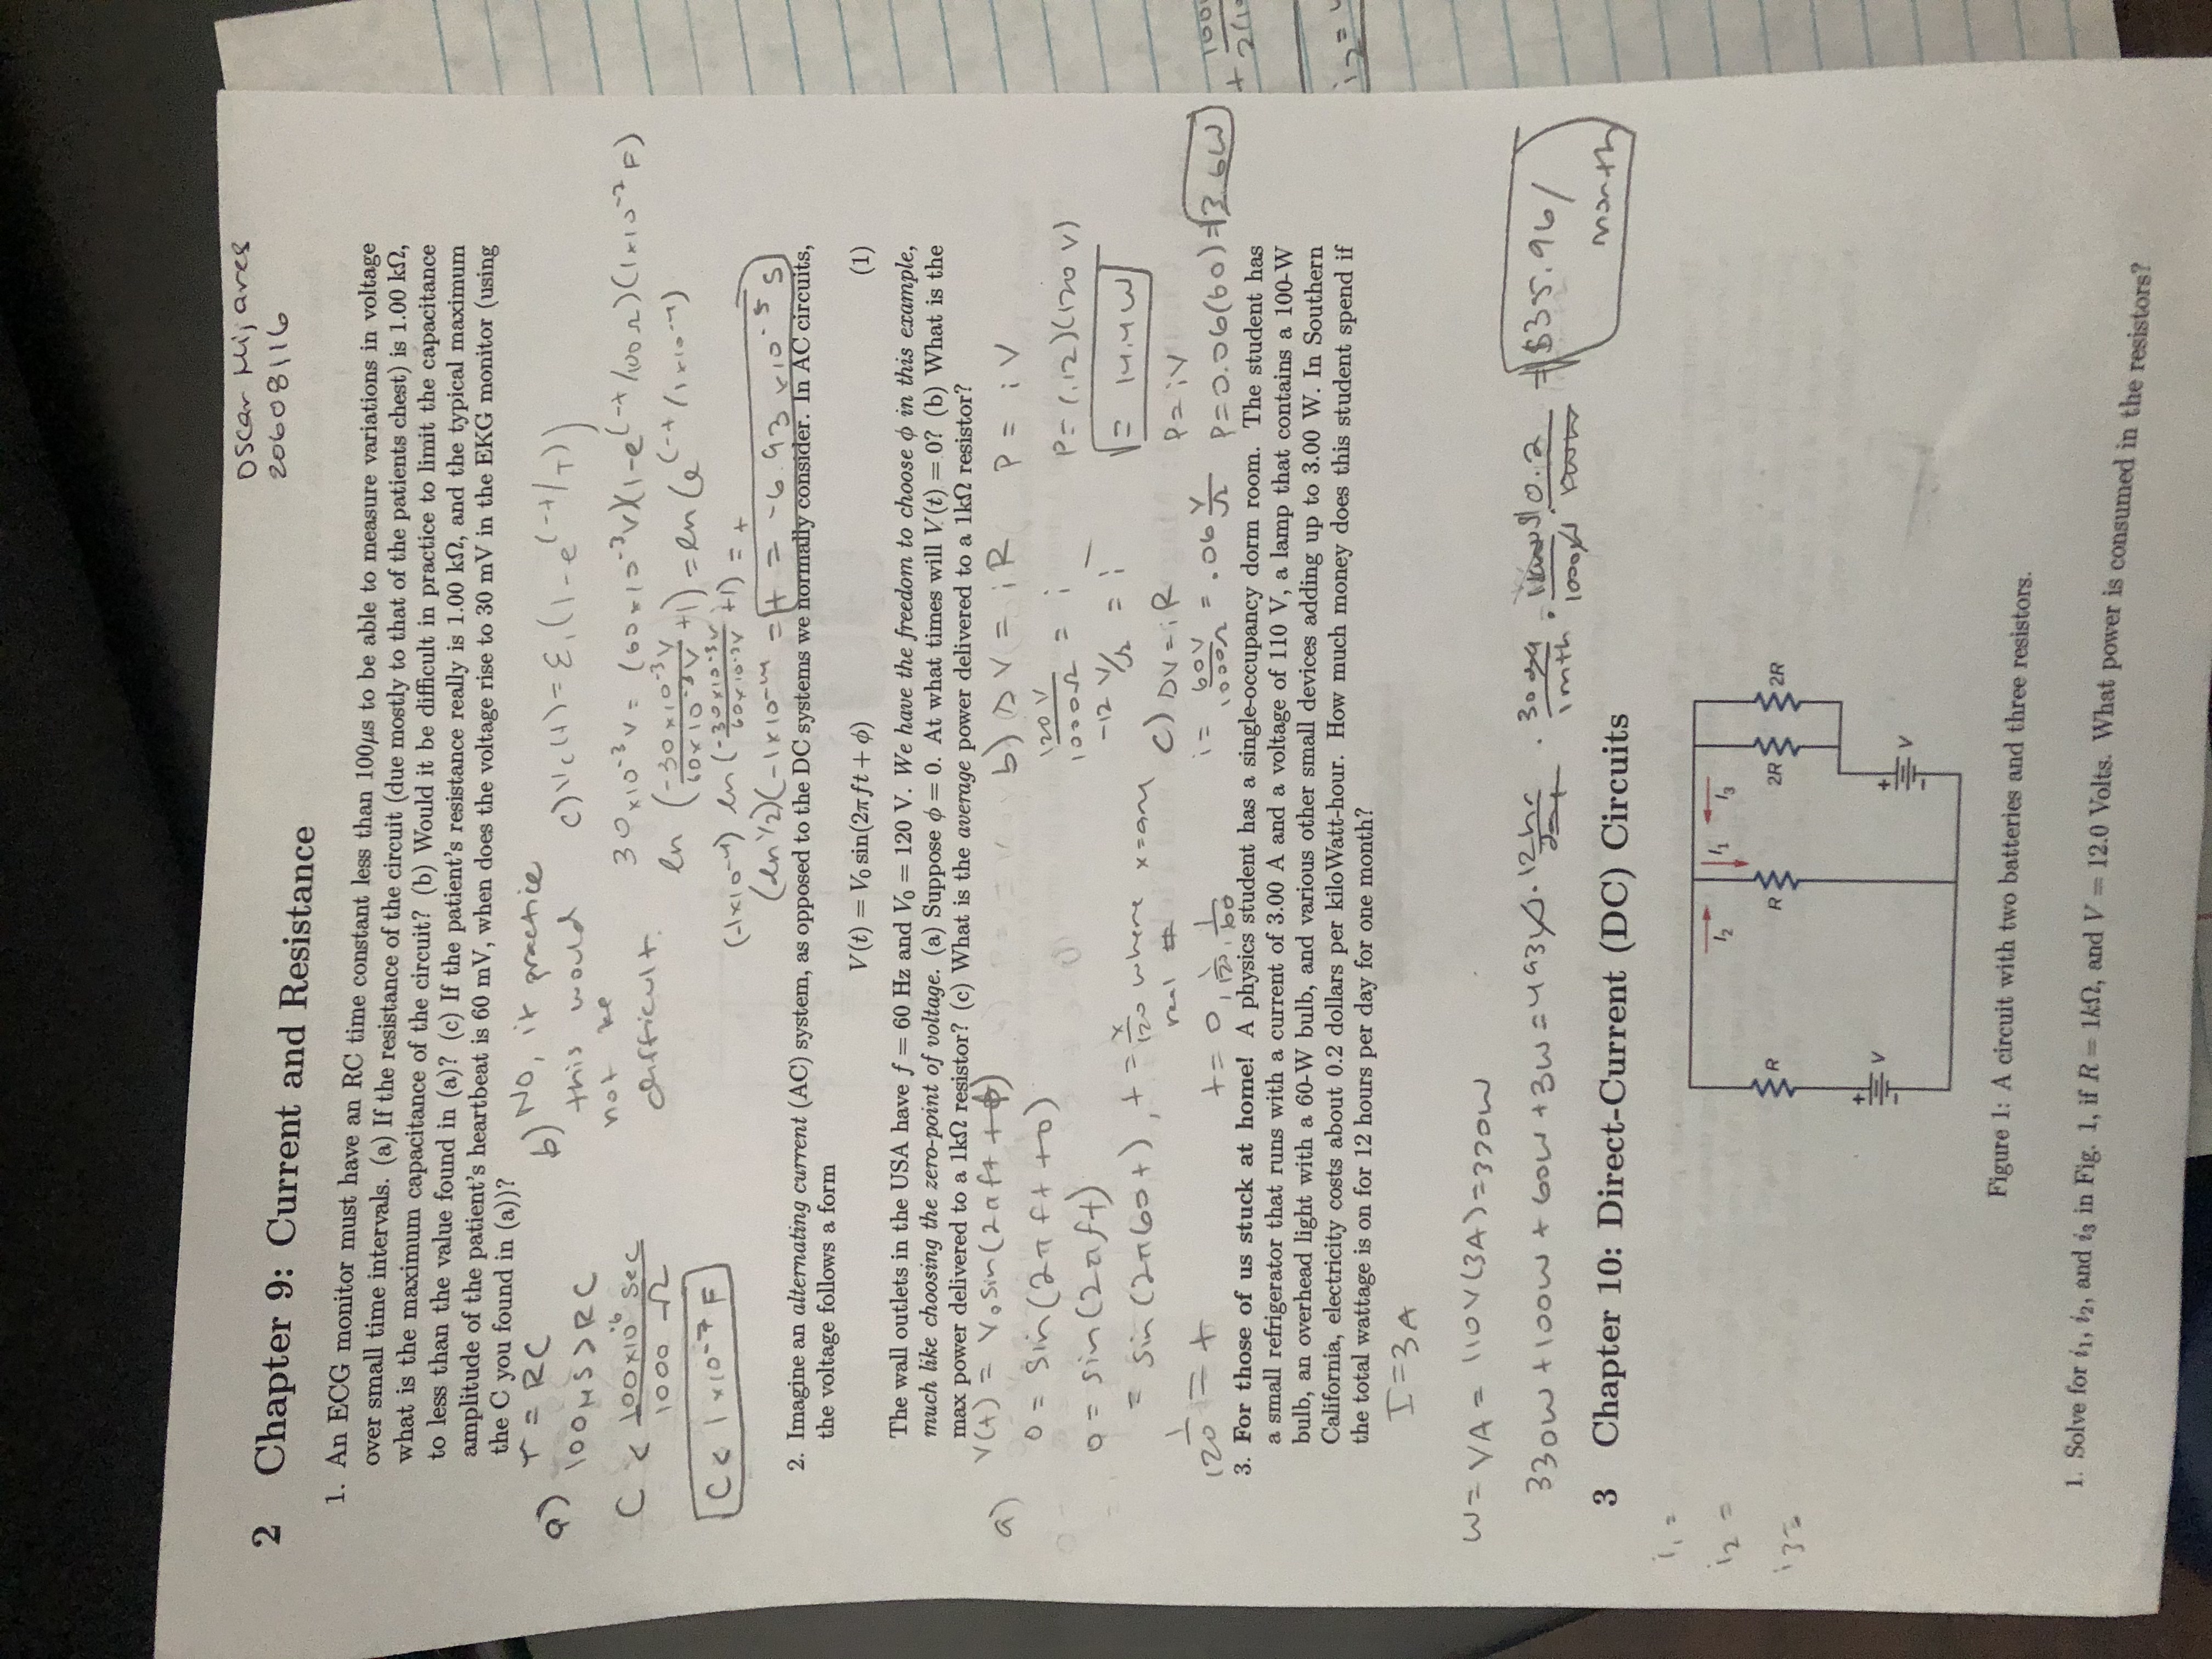 Oscar Mijares
20608116
2 Chapter 9: Current and Resistance
1. An ECG monitor must have an RC time constant less than 100μs to be able to measure variations in voltage
over small time intervals. (a) If the resistance of the circuit (due mostly to that of the patients chest) is 1.00 kΩ,
what is the maximum capacitance of the circuit? (b) Would it be difficult in practice to limit the capacitance
to less than the value found in (a)? (c) If the patient's resistance really is 1.00 kΩ, and the typical maximum
amplitude of the patient's heartbeat is 60 mV, when does the voltage rise to 30 mV in the EKG monitor (using
the C you found in (a))?
a) τ = RC
100μs > RC
C < 100x10^-6 sec / 1000 Ω
C < 1x10^-7 F
b) No, it practice
this would
not be
difficult.
c) Vc(t) = ε1(1-e^(-t/τ))
30x10^-3 V = (60x10^-3 V)(1-e^(-t/100Ω)(1x10^-7 F)
ln (-30x10^-3 V / 60x10^-3 V +1) = ln(e^(-t/1x10^-4)
(-1x10^-4) ln (-30x10^-3 V / 60x10^-3 V +1) = t
(ln 1/2)(-1x10^-4 = t = -6.93 x10^-5 s
2. Imagine an alternating current (AC) system, as opposed to the DC systems we normally consider. In AC circuits,
the voltage follows a form
V(t) = V₀ sin(2πft + φ) (1)
The wall outlets in the USA have f = 60 Hz and V₀ = 120 V. We have the freedom to choose φ in this example,
much like choosing the zero-point of voltage. (a) Suppose φ = 0. At what times will V(t) = 0? (b) What is the
max power delivered to a 1kΩ resistor? (c) What is the average power delivered to a 1kΩ resistor?
a) V(t) = V₀ sin(2πft + φ)
0 = sin(2πft + 0)
0 = sin(2πft)
= sin(2π60t), t = x/120 where x=any
real #
1/120 = t
t = 0, 1/120, 1/60
b) ΔV = iR P = iV
120 V / 1000Ω = i P = (.12)(120 V)
.12 V/Ω = i = 14.4W
c) ΔV = iR P = iV
i = 60V / 1000Ω = .06 V/Ω P = 0.06(60) = 3.6W
3. For those of us stuck at home! A physics student has a single-occupancy dorm room. The student has
a small refrigerator that runs with a current of 3.00 A and a voltage of 110 V, a lamp that contains a 100-W
bulb, an overhead light with a 60-W bulb, and various other small devices adding up to 3.00 W. In Southern
California, electricity costs about 0.2 dollars per kiloWatt-hour. How much money does this student spend if
the total wattage is on for 12 hours per day for one month?
I = 3A
W = VA = 110V(3A) = 330W
330W + 100W + 60W + 3W = 493W · 12hr/day · 30 day/1 mth · 1kW/1000W · $0.2/kWh = $35.96/
month
3 Chapter 10: Direct-Current (DC) Circuits
i₁ =
i₂ =
i₃ =
I₂ I₁ I₃
R R 2R 2R
+ V -
+ V -
Figure 1: A circuit with two batteries and three resistors.
1. Solve for i₁, i₂, and i₃ in Fig. 1, if R = 1kΩ, and V = 12.0 Volts. What power is consumed in the resistors?